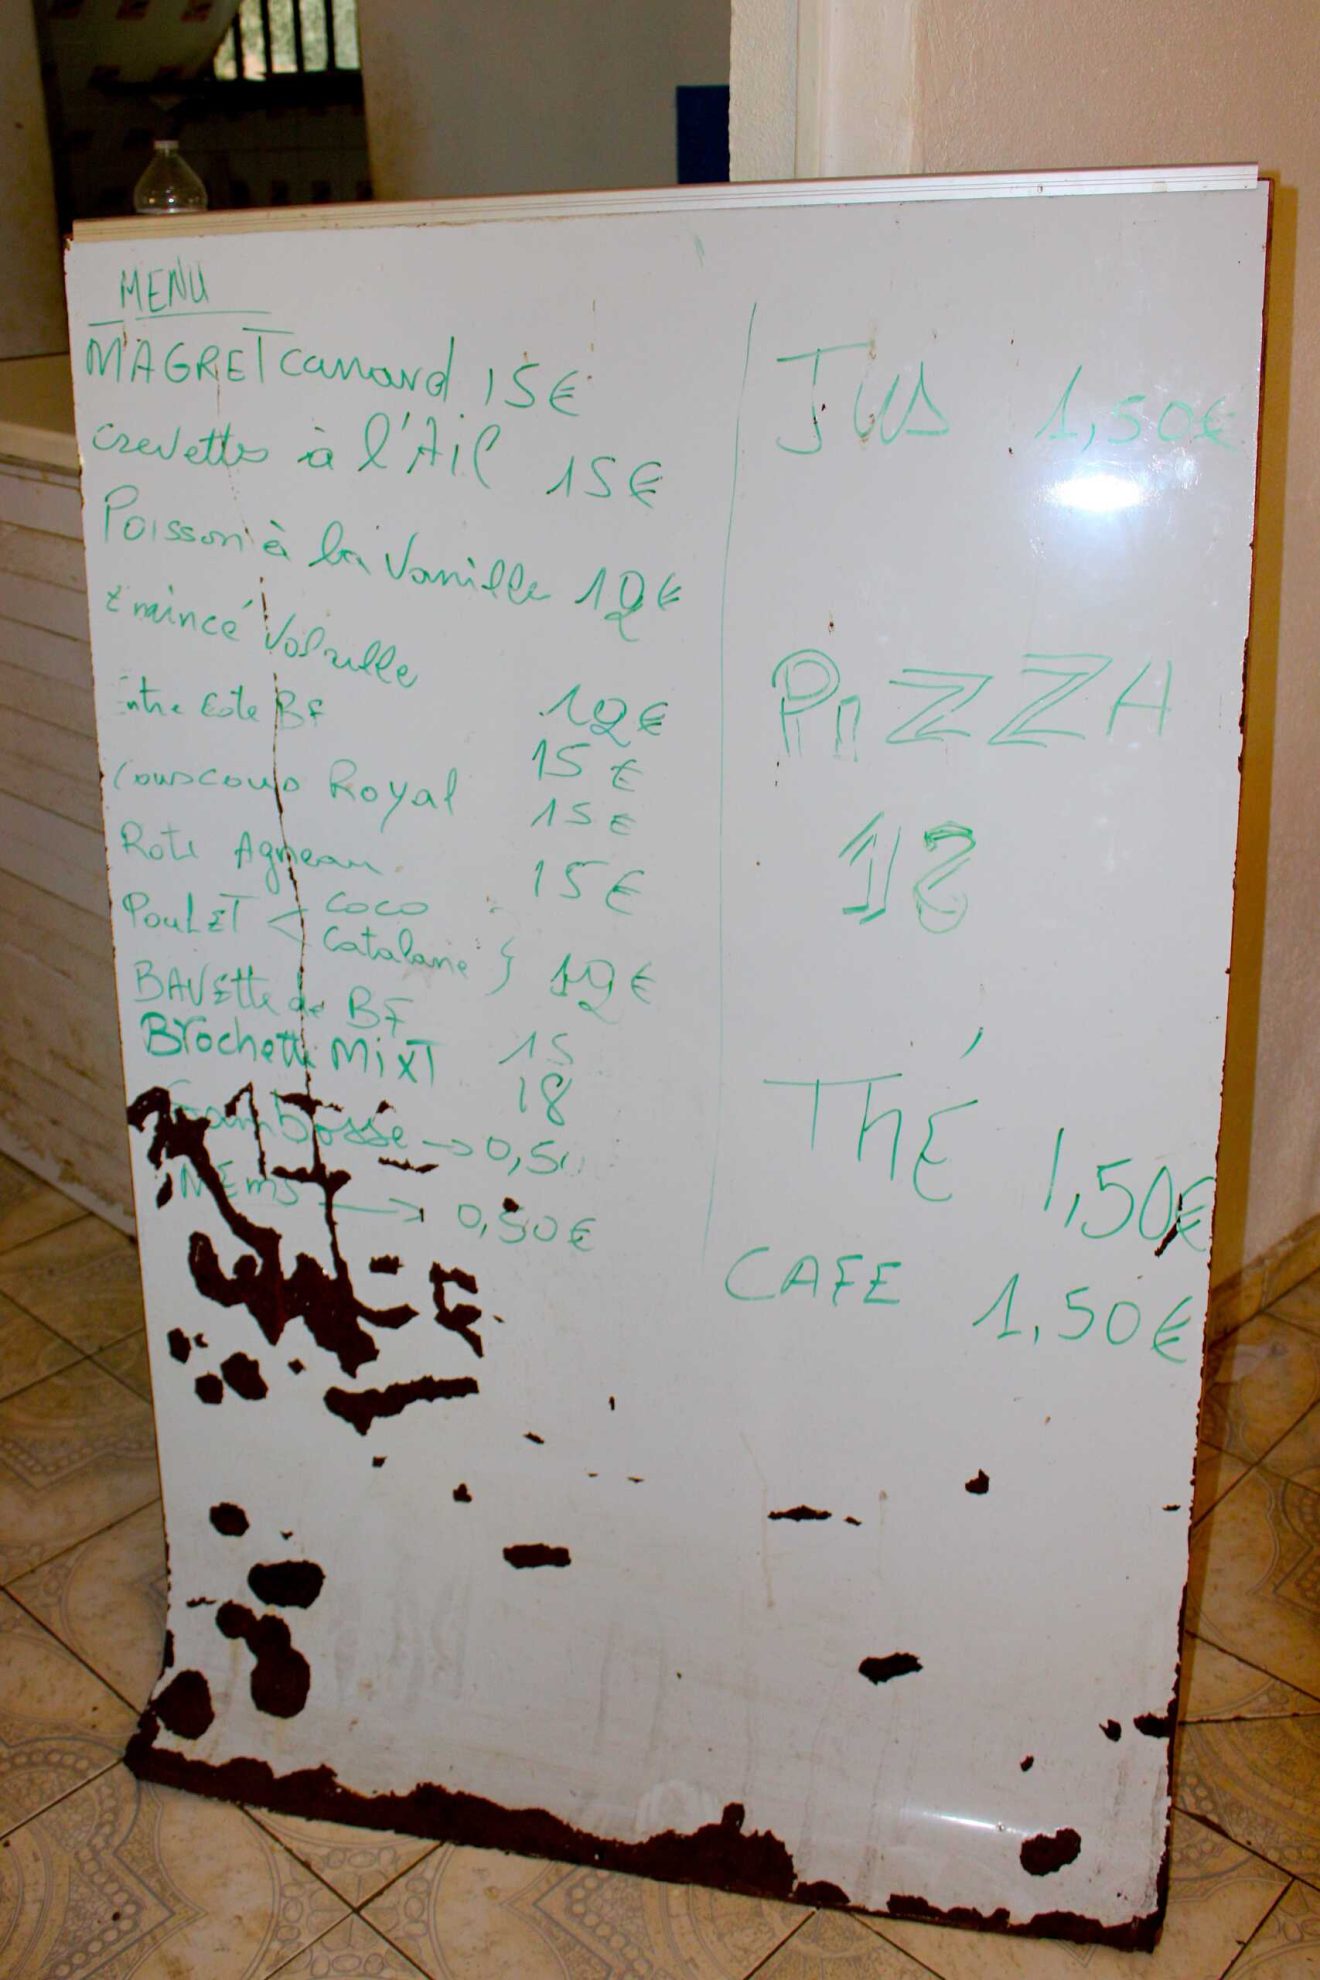 MENU
MAGRET canard 15€
crevettes à l'Ail 15€
Poisson à la Vanille 12€
Emincé Volaille 12€
Entre Cote BF 15€
Couscous Royal 15€
Roti Agneau 15€
POULET < coco
Catalane } 12€
BAVette de BF 15
Brochette MiXT 18
Sambossée → 0,50
NEMS → 0,50€
JUS 1,50€
PIZZA
12
THÉ 1,50€
CAFE 1,50€